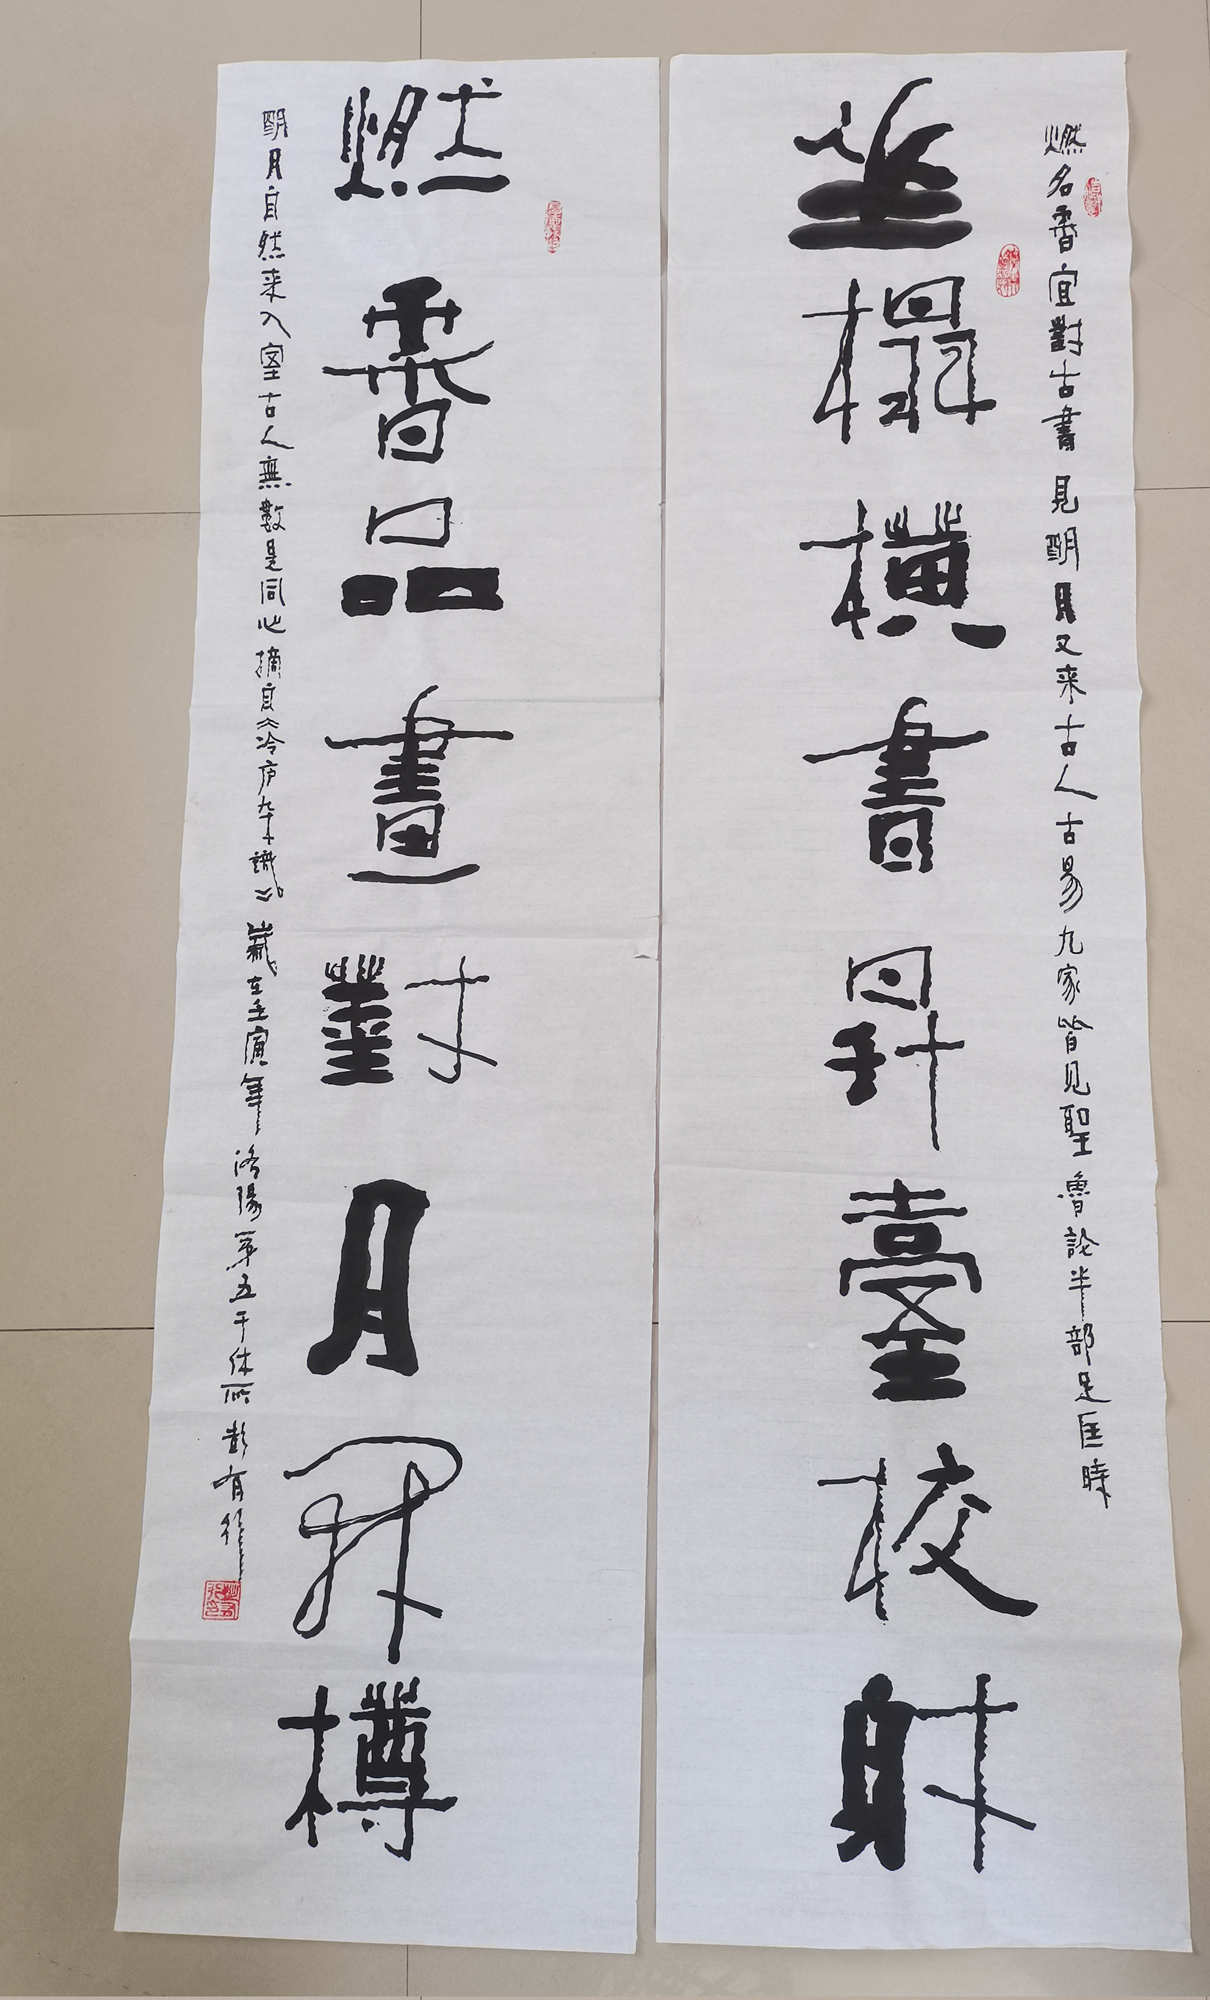 燃名香宜對古書見明月又来古人古易九家皆見聖魯論半部足匡時
坐榻橫書昇臺校射
燃香品畫對月開樽
明月自然来入室古人無數是同心摘自《冷庐杂識》歲在壬寅年洛陽第五干休所彭有